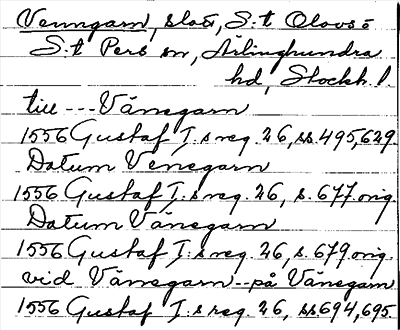 Venngarn, slott, S:t Olovs o
S:t Pers sn, Ärlinghundra
hd, Stockh. l.
till --- Vänegarn
1556 Gustaf I:s reg. 26, ss. 495, 629.
Datum Venegarn
1556 Gustaf I:s reg. 26, s. 677. orig.
Datum Vänegarn
1556 Gustaf I:s reg. 26, s. 679. orig.
vid Vänegarn -- på Vänegarn
1556 Gustaf I:s reg. 26, ss 694, 695.